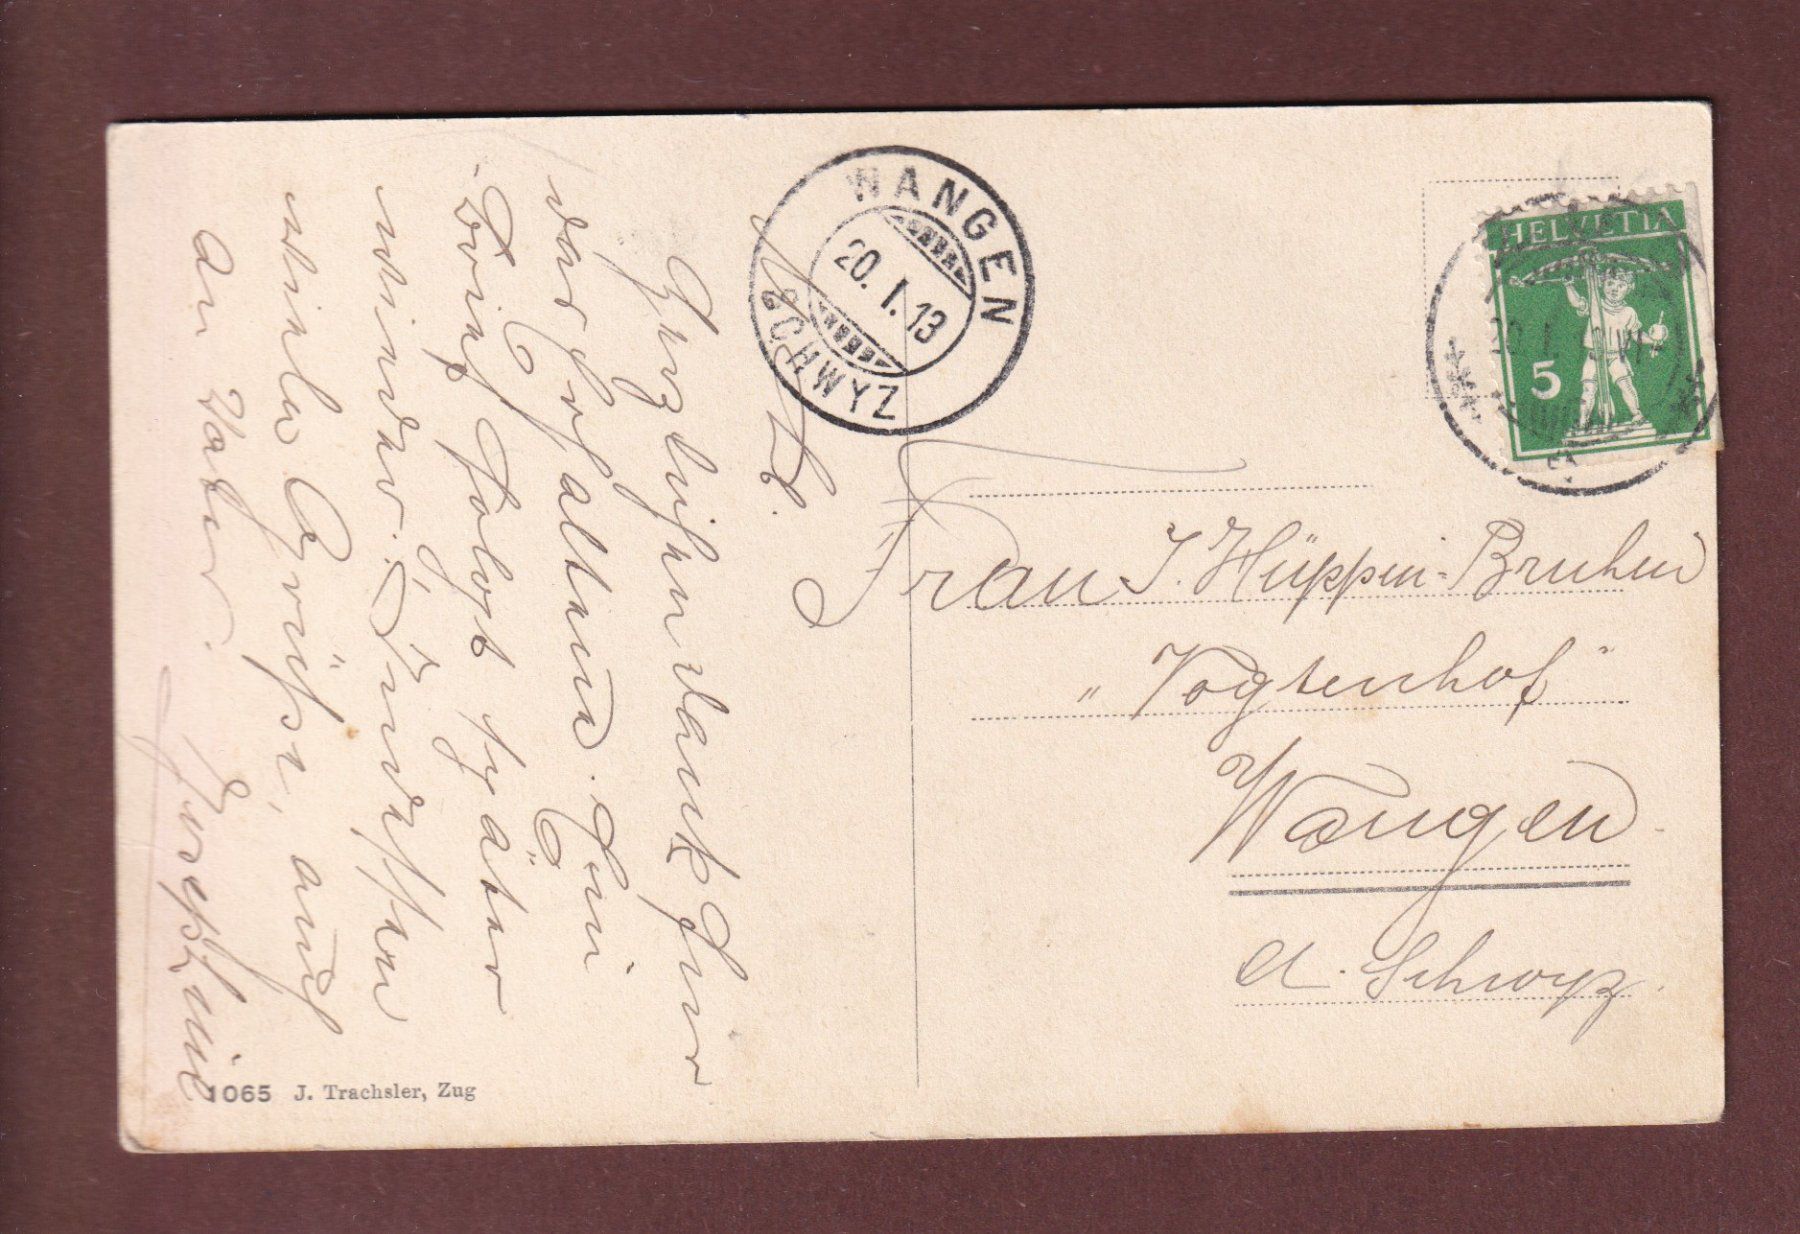 WANGEN
20. I. 13
SCHWYZ
HELVETIA
5
M. L.
Herzlichen Dank für
das Erhaltene. Ein
Brief folgt später
wieder. Indessen
viele Grüsse, auch
an Vater.
Frau J. Hüppin-Bruhin
"Vogtenhof"
Wangen
Ct. Schwyz.
1065 J. Trachsler, Zug